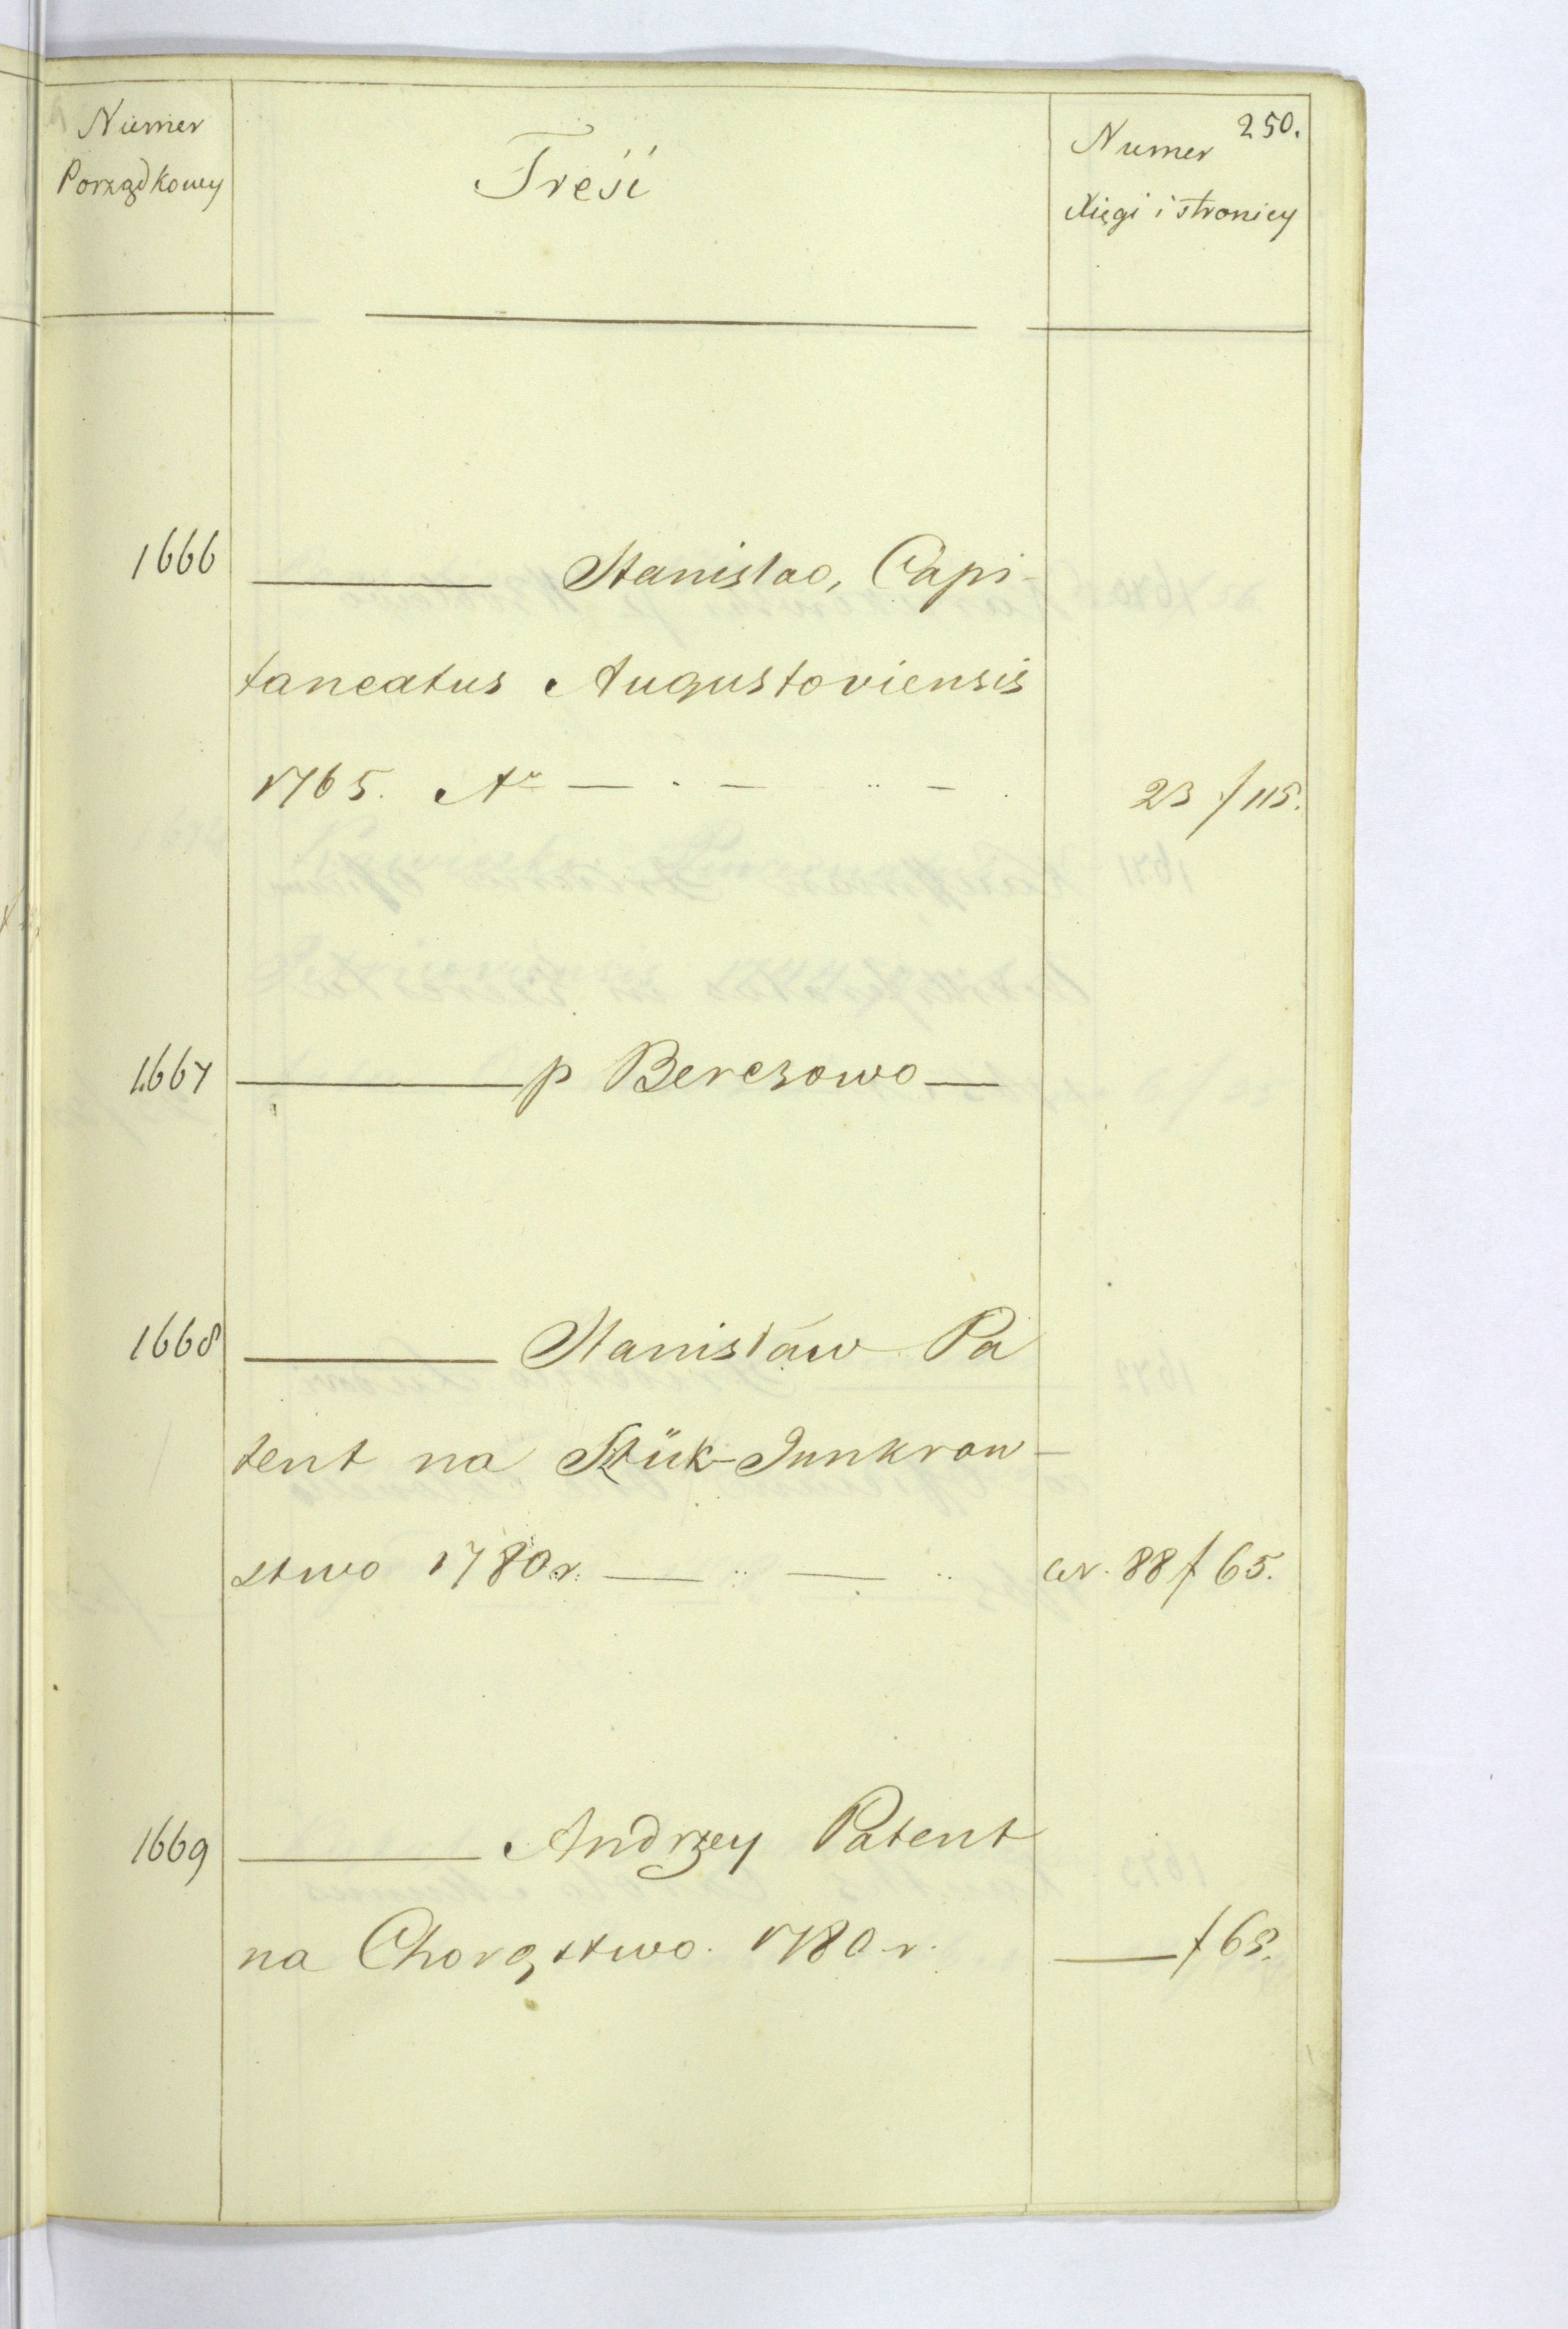 250.
Numer
Porządkowy
Treść
Numer
Xięgi i stronicy
1666 ——— Stanislao, Capi-
taneatus Augustoviensis
1765. Ao — . — .. — . 23 f 115.
1667 ——— p Berezowo —
1668 ——— Stanisław Pa
tent na Sztük-Junkrow-
stwo 1780 r. — .. — .. cer. 88 f 65.
1669 ——— Andrzey Patent
na Chorąstwo. 1780 r. ——— f 68.